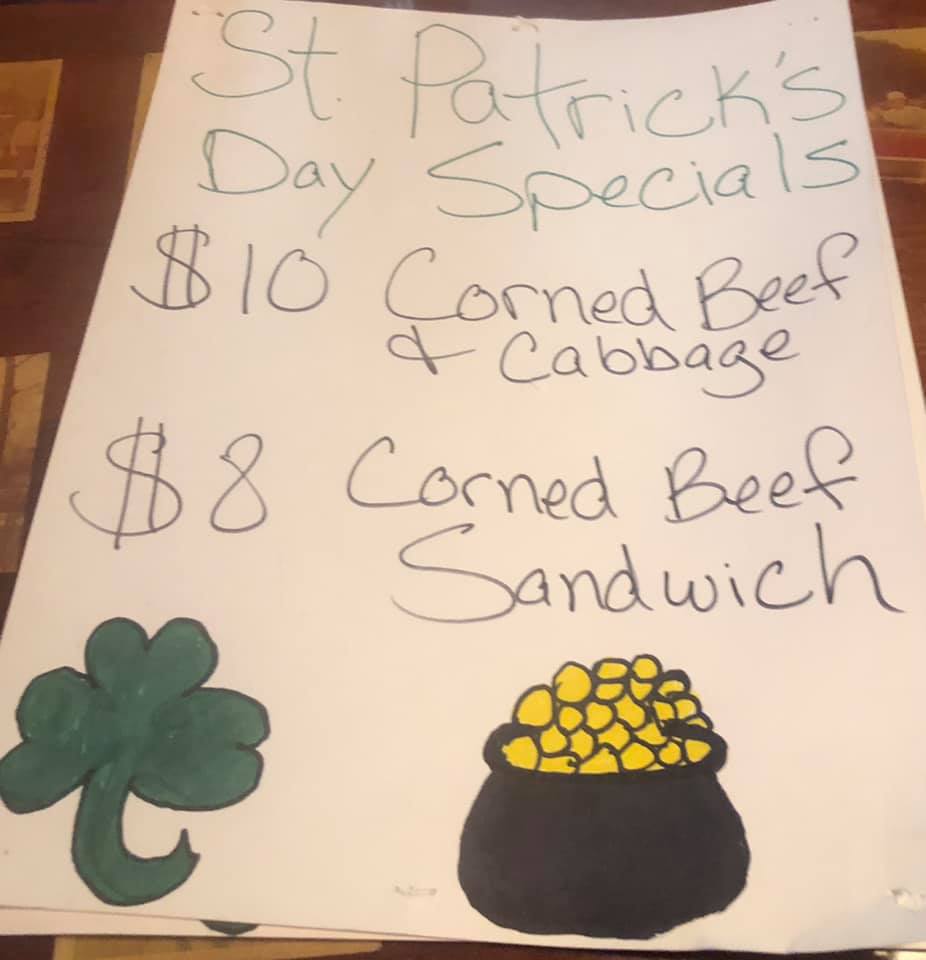 St. Patrick's
Day Specials
$10 Corned Beef
& Cabbage
$8 Corned Beef
Sandwich